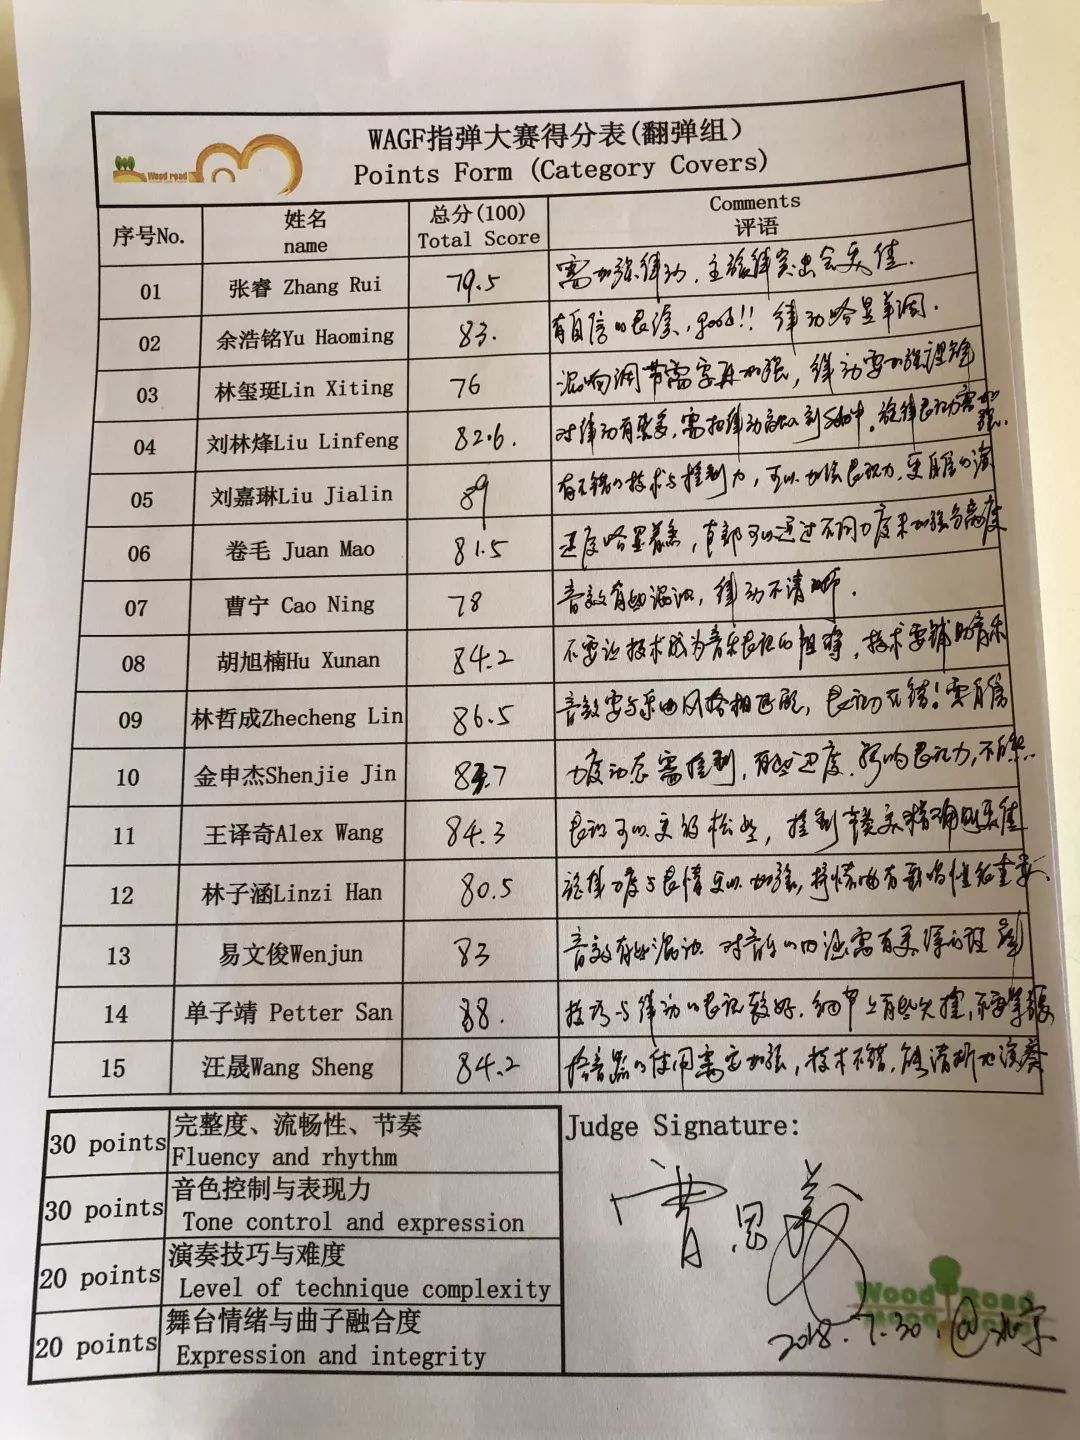 WAGF指弹大赛得分表(翻弹组)
Points Form (Category Covers)
Wood road
序号No. 姓名 name 总分(100) Total Score Comments 评语
01 张睿 Zhang Rui 79.5 需加强律动，主旋律突出会更佳.
02 余浩铭Yu Haoming 83. 有自信的表演，good!! 律动略显单调.
03 林玺珽Lin Xiting 76 混响调节需要再加强，律动要加强
04 刘林烽Liu Linfeng 82.6. 对律动有要求，需把律动融入到 旋律表现力需加强.
05 刘嘉琳Liu Jialin 89 有不错的技术与控制力，可以加强表现力
06 卷毛 Juan Mao 81.5 速度略显着急，可以通过不同力度来加强
07 曹宁 Cao Ning 78 音效有些混浊，律动不清晰.
08 胡旭楠Hu Xunan 84.2 不要让技术成为音乐表现的阻碍，技术要辅助音乐
09 林哲成Zhecheng Lin 86.5 音效要与乐曲风格相匹配，表现力不错！要自信
10 金申杰Shenjie Jin 83.7 力度动态需控制，有些速度. 影响表现力，不自然...
11 王译奇Alex Wang 84.3 表现可以更放松些，控制 更精确则更佳
12 林子涵Linzi Han 80.5 旋律力度与表情可以加强，
13 易文俊Wenjun 83 音效有些混浊. 对音乐的内涵需有更深的理解
14 单子靖 Petter San 88. 技巧与律动的表现较好. 细节上有些失控，
15 汪晟Wang Sheng 84.2 拾音器的使用需要加强，技术不错，能清晰地演奏
30 points 完整度、流畅性、节奏
Fluency and rhythm
30 points 音色控制与表现力
Tone control and expression
20 points 演奏技巧与难度
Level of technique complexity
20 points 舞台情绪与曲子融合度
Expression and integrity
Judge Signature:
曹思义
Wood Road
2018.7.30.@北京